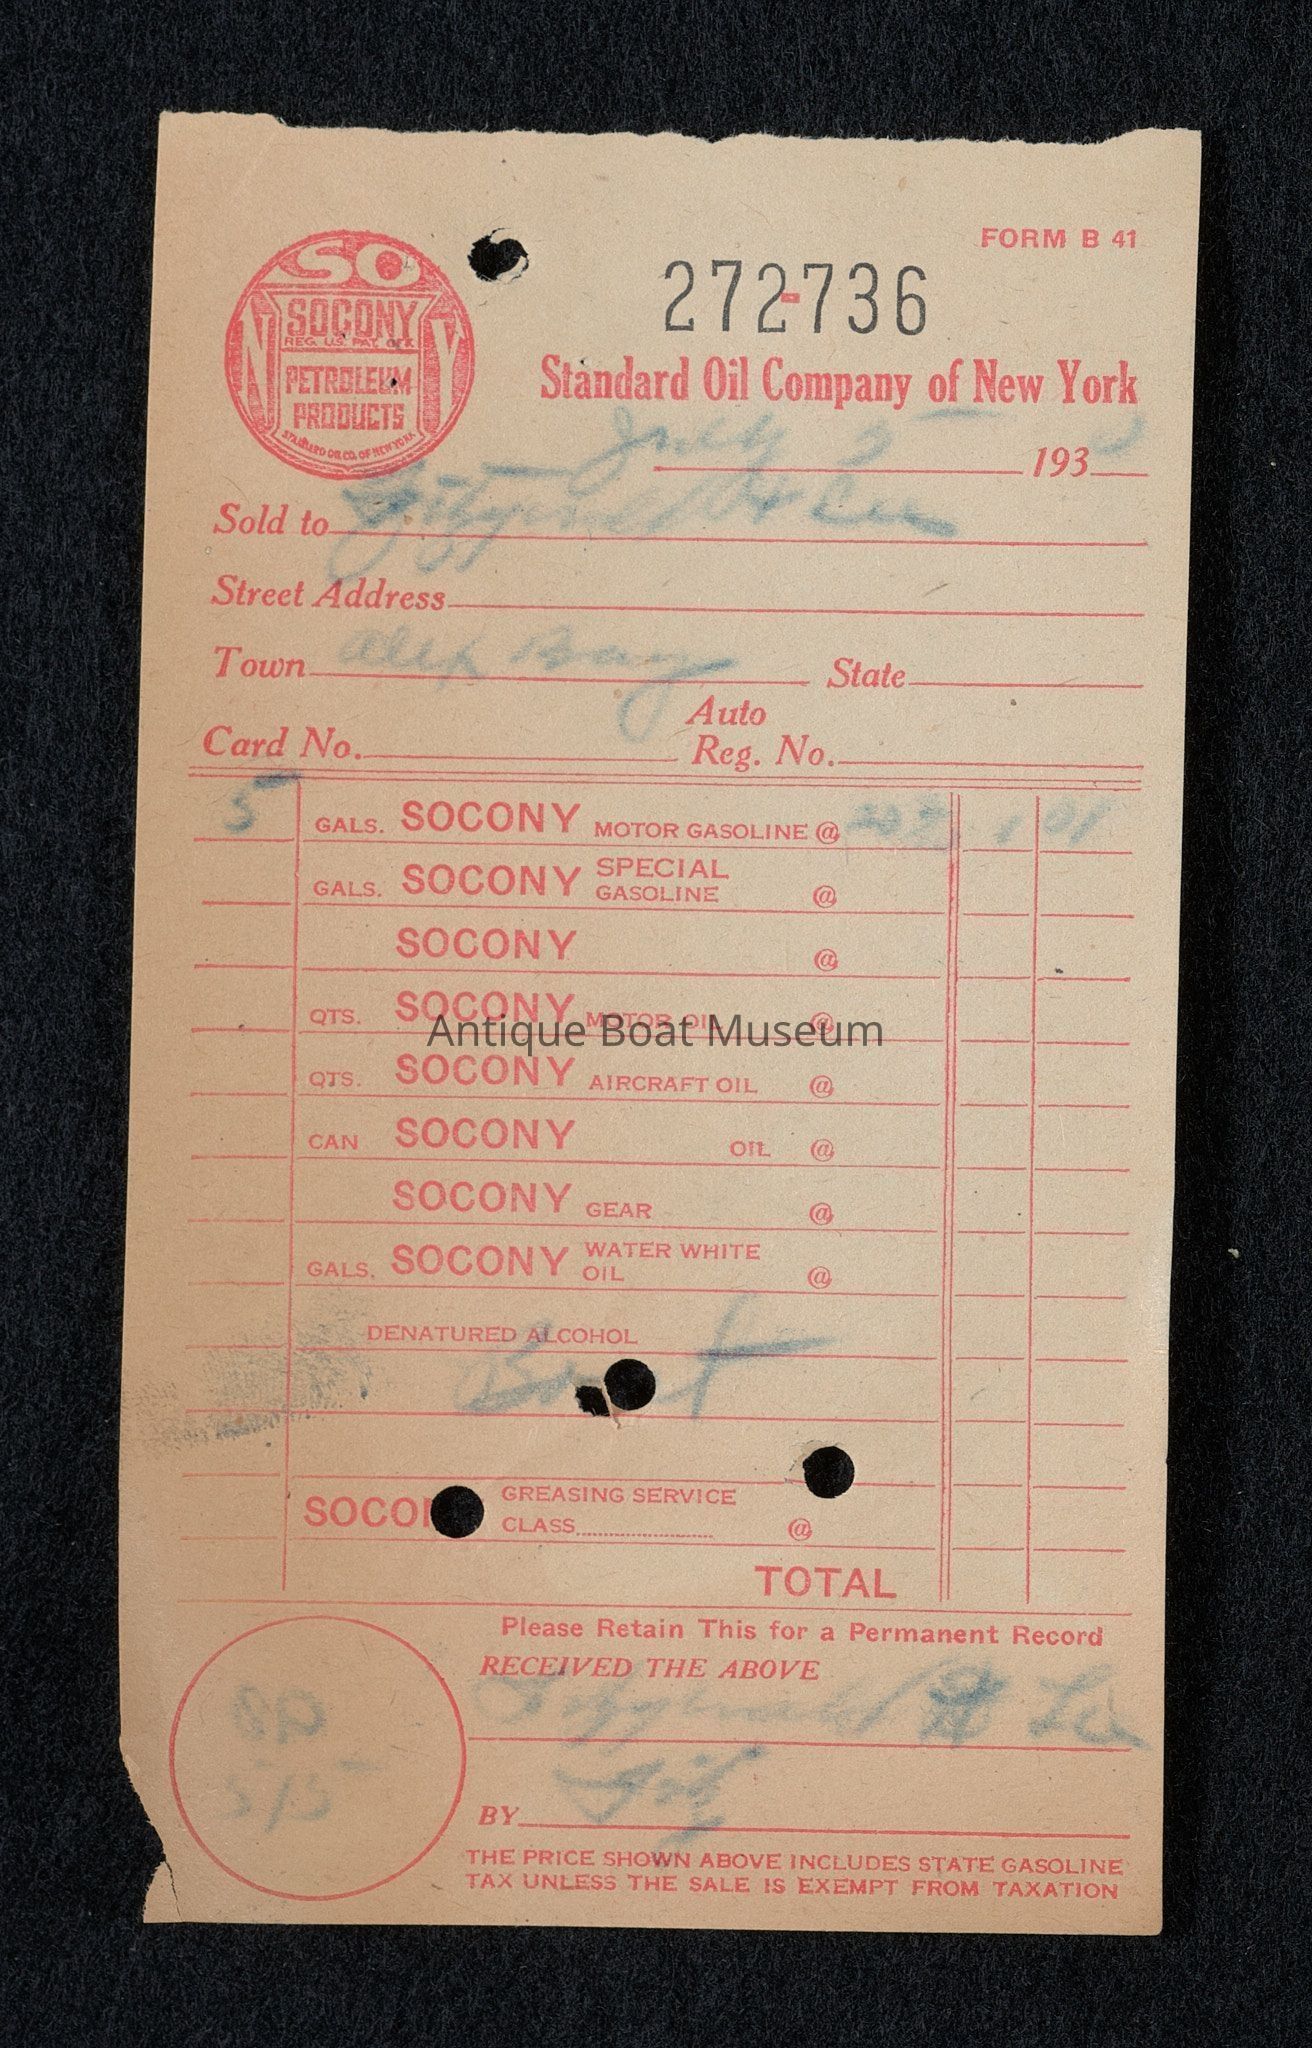 FORM B 41
272-736
SO
NY
SOCONY
REG. U.S. PAT. OFF.
PETROLEUM
PRODUCTS
STANDARD OIL CO. OF NEW YORK
Standard Oil Company of New York
July 5 1930
Sold to Fitzgerald & Lee
Street Address
Town Alex Bay State
Card No. Auto Reg. No.
5 GALS. SOCONY MOTOR GASOLINE @ 203 1 01
GALS. SOCONY SPECIAL GASOLINE @
SOCONY @
QTS. SOCONY MOTOR OIL @
Antique Boat Museum
QTS. SOCONY AIRCRAFT OIL @
CAN SOCONY OIL @
SOCONY GEAR @
GALS. SOCONY WATER WHITE OIL @
DENATURED ALCOHOL
Boat
SOCON GREASING SERVICE
CLASS @
TOTAL
Please Retain This for a Permanent Record
RECEIVED THE ABOVE
Fitzgerald & Lee
BY
515
THE PRICE SHOWN ABOVE INCLUDES STATE GASOLINE
TAX UNLESS THE SALE IS EXEMPT FROM TAXATION